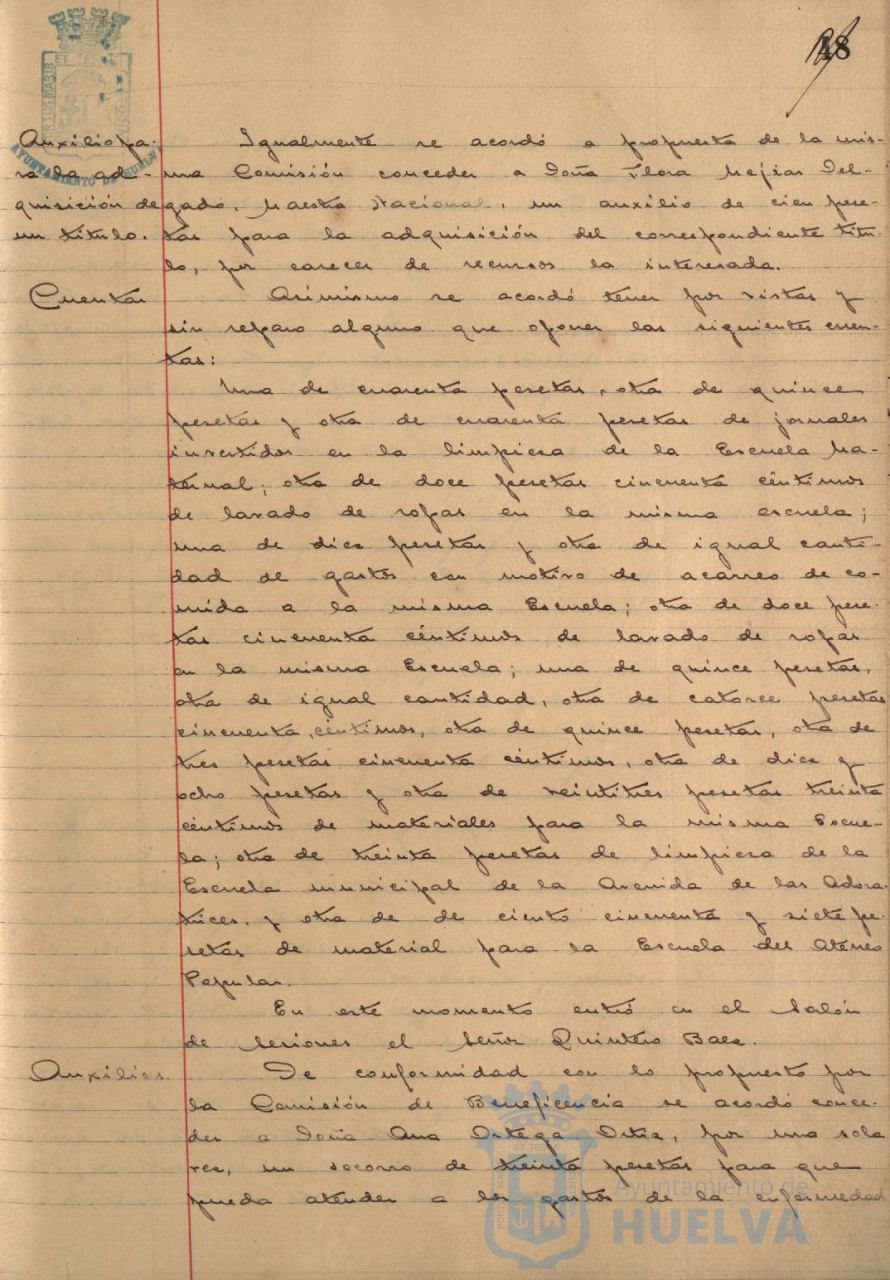 18
Auxilio pa-
ra la ad-
quisición de
un título.
Igualmente se acordó a propuesta de la mis-
ma Comisión conceder a Doña Flora Mejías Del-
gado, Maestra Nacional, un auxilio de cien pese-
tas para la adquisición del correspondiente títu-
lo, por carecer de recursos la interesada.
Cuentas
Asimismo se acordó tener por vistas y
sin reparo alguno que oponer las siguientes cuen-
tas:
Una de cuarenta pesetas, otra de quince
pesetas y otra de cuarenta pesetas de jornales
invertidos en la limpieza de la Escuela Ma-
ternal; otra de doce pesetas cincuenta céntimos
de lavado de ropas en la misma escuela;
una de diez pesetas y otra de igual canti-
dad de gastos con motivo de acarreo de co-
mida a la misma Escuela; otra de doce pese-
tas cincuenta céntimos de lavado de ropas
en la misma Escuela; una de quince pesetas,
otra de igual cantidad, otra de catorce pesetas
cincuenta céntimos, otra de quince pesetas, otra de
tres pesetas cincuenta céntimos, otra de diez y
ocho pesetas y otra de veintitres pesetas treinta
céntimos de materiales para la misma Escue-
la; otra de treinta pesetas de limpieza de la
Escuela municipal de la Avenida de las Adora-
trices, y otra de de ciento cincuenta y siete pe-
setas de material para la Escuela del Ateneo
Popular.
En este momento entró en el Salón
de Sesiones el Señor Quintero Baez.
Auxilios.
De conformidad con lo propuesto por
la Comisión de Beneficencia se acordó conce-
der a Doña Ana Ortega Ortiz, por una sola
vez, un socorro de treinta pesetas para que
pueda atender a los gastos de la enfermedad
AYUNTAMIENTO DE HUELVA
Ayuntamiento de
HUELVA